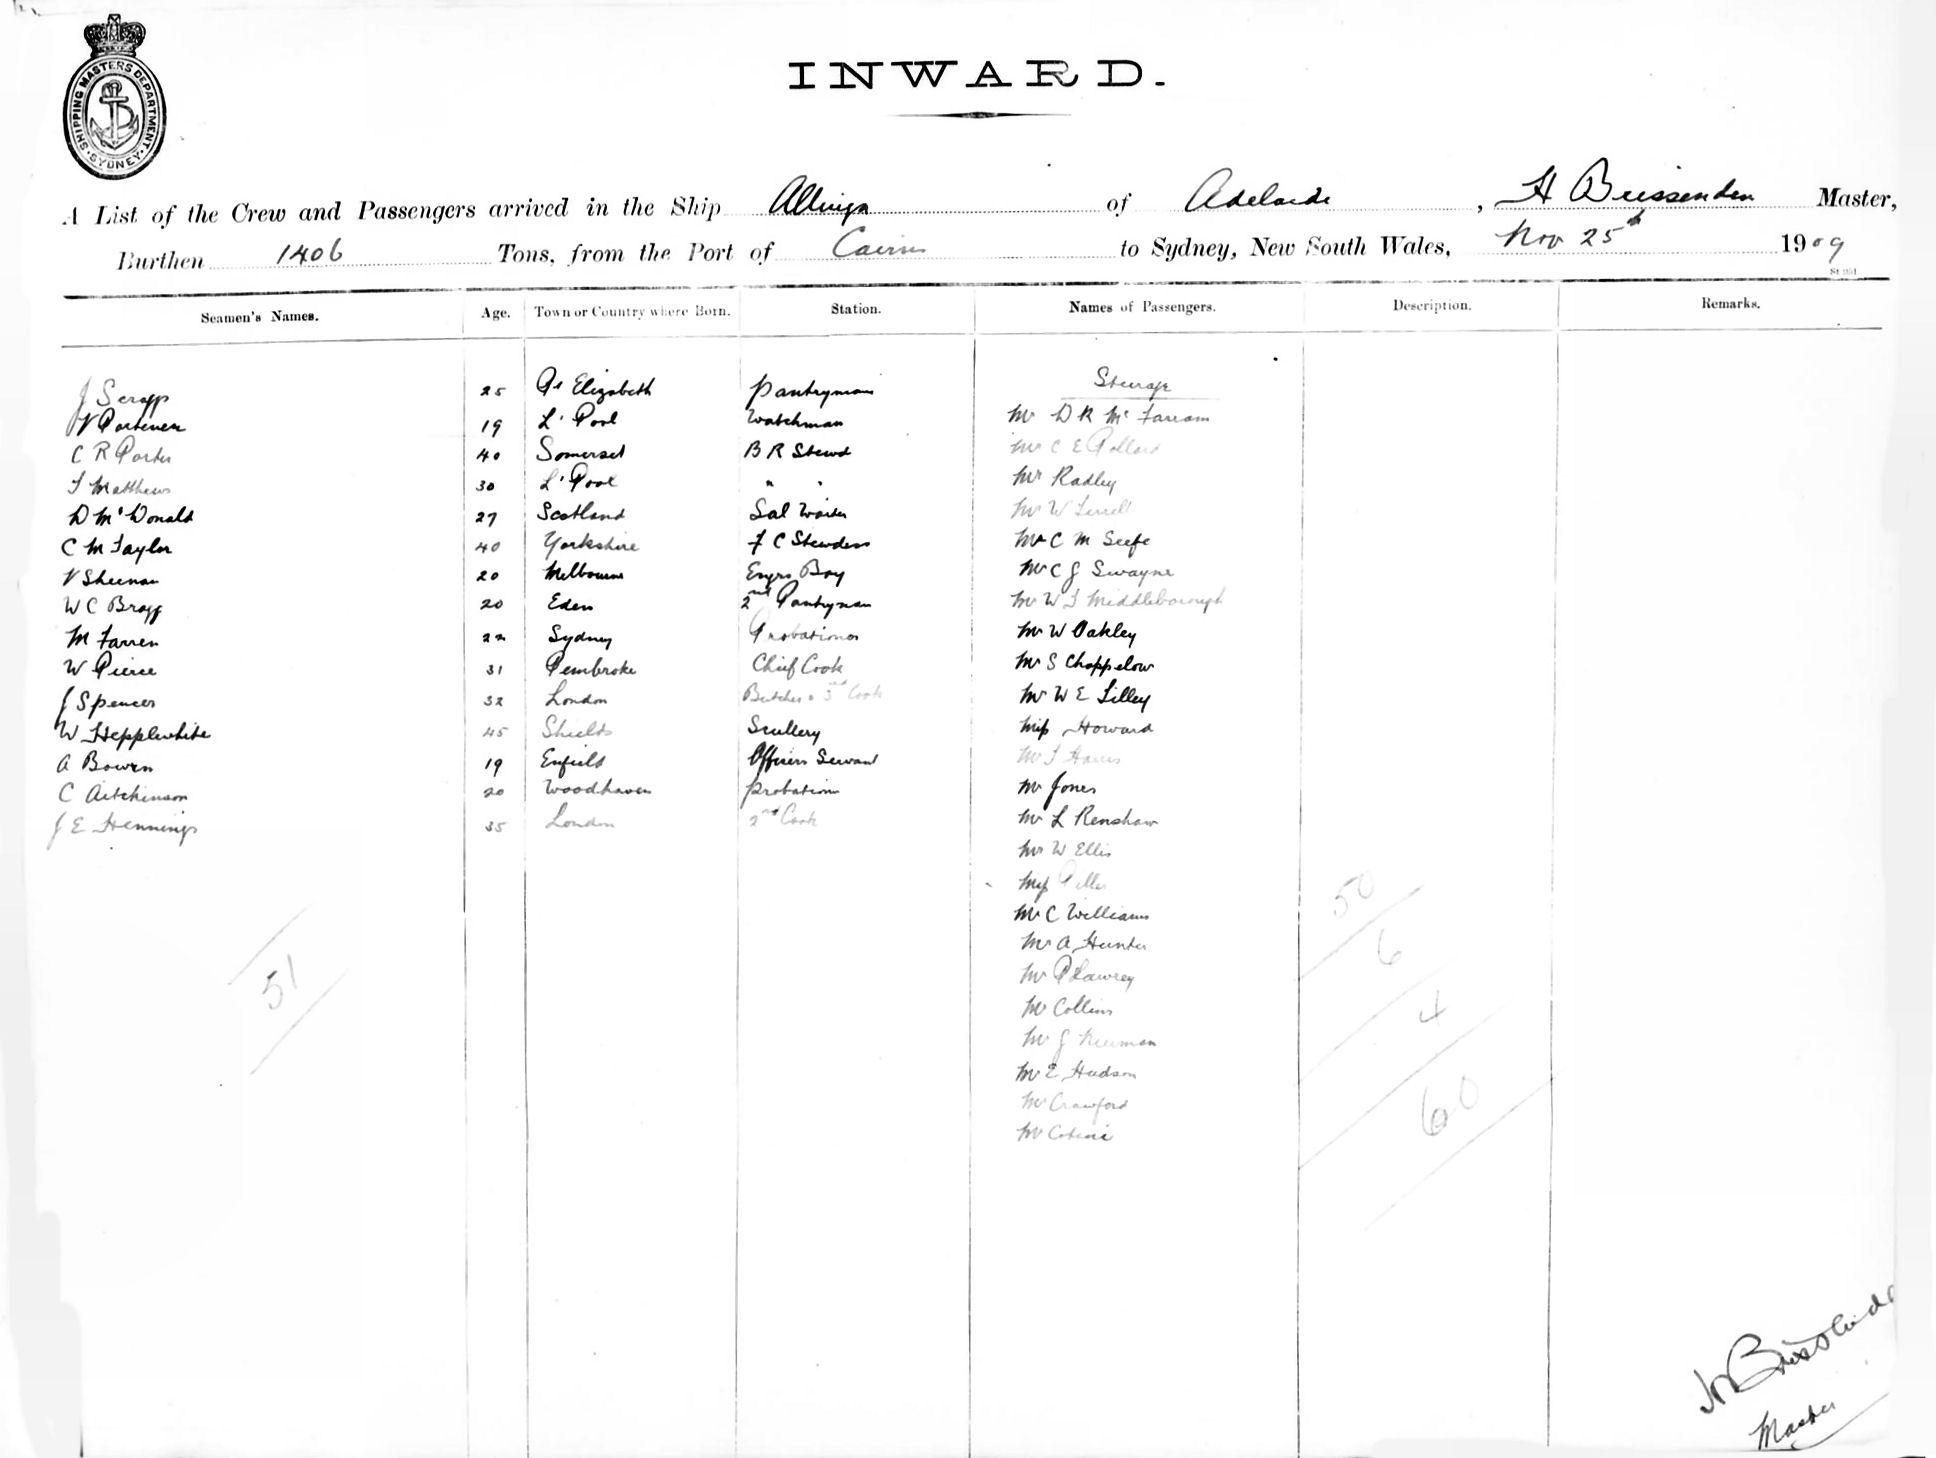 SHIPPING MASTERS DEPARTMENT
SYDNEY
INWARD.
A List of the Crew and Passengers arrived in the Ship Allinga of Adelaide, H Brissenden Master,
Burthen 1406 Tons, from the Port of Cairns to Sydney, New South Wales, Nov 25th 1909
Seamen's Names. Age. Town or Country where Born. Station. Names of Passengers. Description. Remarks.
Steerage
J Scrapp 25 Pt Elizabeth Pantryman
V 19 L'Pool Watchman Mr D R McFarram
C R Porter 40 Somerset B R Stewd Mr C E Pollard
F Matthews 30 L'Pool " " Mr Radley
D McDonald 27 Scotland Sal Waiter Mr W
C M Taylor 40 Yorkshire F C Stewdess Mr C M
V Sheenan 20 Melbourne Engrs Boy Mr C J Swayne
W C Bragg 20 Eden 2nd Pantryman Mr W F Middleborough
M Farren 22 Sydney Probationer Mr W Oakley
W Pierce 31 Pembroke Chief Cook Mr S Chappelow
J Spencer 32 London Butcher & 3rd Cook Mr W E Lilley
W Hepplewhite 45 Shields Scullery Miss Howard
A Bowen 19 Enfield Officers Servant Mr F Harris
C Aitchinson 20 Woodhaven Probation Mr Jones
J E Hennings 35 London 2nd Cook Mr L Renshaw
Mr W Ellis
Miss
Mr C Williams
Mr A Hunter
Mr P Lawrey
Mr Collins
Mr J
Mr E Hudson
Mr Crawford
Mr
51
50
6
4
60
H Brissenden
Master